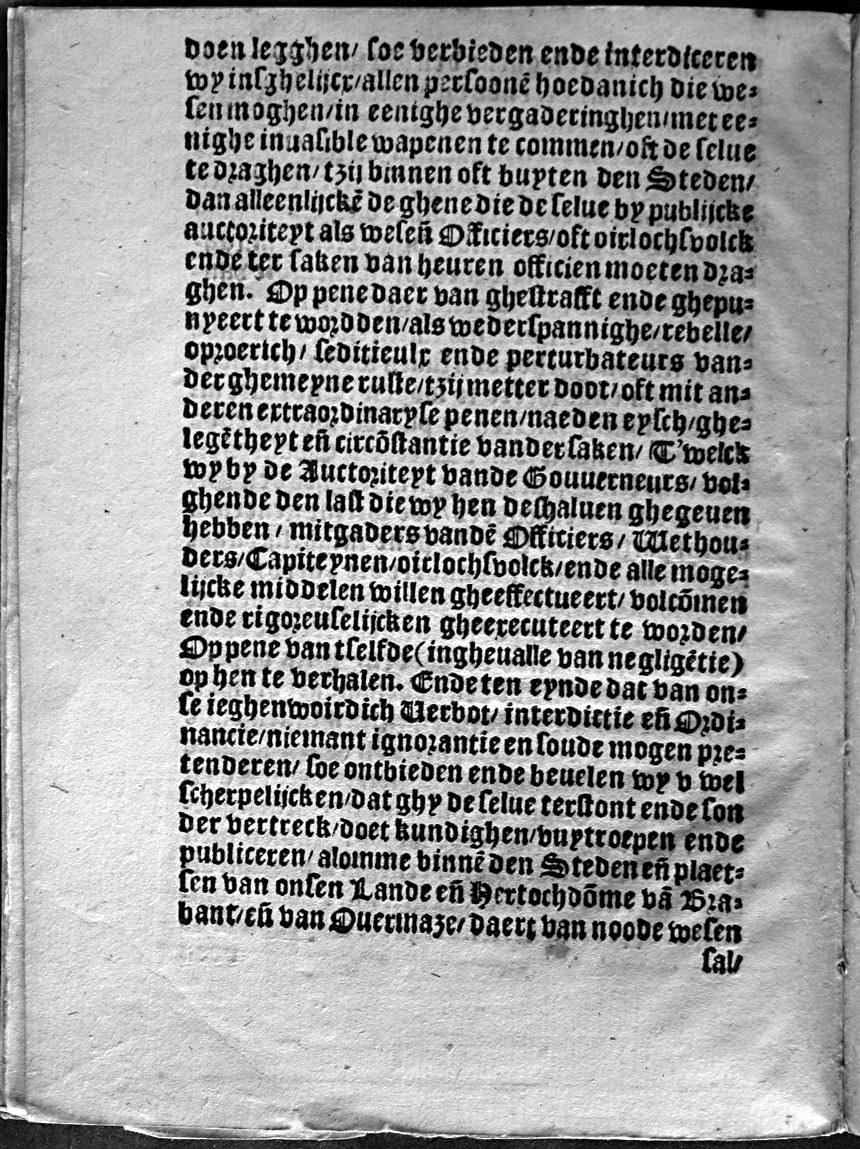 doen legghen/ soe verbieden ende interdiceren
wy insghelijcx/allen persoonē hoedanich die we⸗
sen moghen/in eenighe vergaderinghen/met ee⸗
nighe inuasible wapenen te commen/oft de selue
te draghen/ tzij binnen oft buyten den Steden/
dan alleenlijckē de ghene die de selue by publijcke
auctoriteyt als wesen̄ Officiers/oft oirlochsvolck
ende ter saken van heuren officien moeten dra⸗
ghen. Op pene daer van ghestrafft ende ghepu⸗
nyeert te wordden/als wederspannighe/rebelle/
oproerich/ seditieulx ende perturbateurs van⸗
der ghemeyne ruste/tzij metter doot/oft mit an⸗
deren extraordinaryse penen/naeden eysch/ghe⸗
legētheyt en̄ circōstantie vander saken/ T'welck
wy by de Auctoriteyt vande Gouuerneurs/ vol⸗
ghende den last die wy hen deshaluen ghegeuen
hebben/ mitgaders vandē Officiers/ Wethou⸗
ders/Capiteynen/oirlochsvolck/ende alle moge⸗
lijcke middelen willen gheeffectueert/ volcōmen
ende rigoreuselijcken gheexecuteert te worden/
Op pene van tselfde(ingheualle van negligētie)
op hen te verhalen. Ende ten eynde dat van on⸗
se ieghenwoirdich Verbot/ interdictie en̄ Ordi⸗
nancie/niemant ignorantie en soude mogen pre⸗
tenderen/ soe ontbieden ende beuelen wy v wel
scherpelijcken/dat ghy de selue terstont ende son
der vertreck/doet kundighen/vuytroepen ende
publiceren/alomme binnē den Steden en̄ plaet⸗
sen van onsen Lande en̄ Hertochdōme vā Bra⸗
bant/en̄ van Ouermaze/ daert van noode wesen
sal/